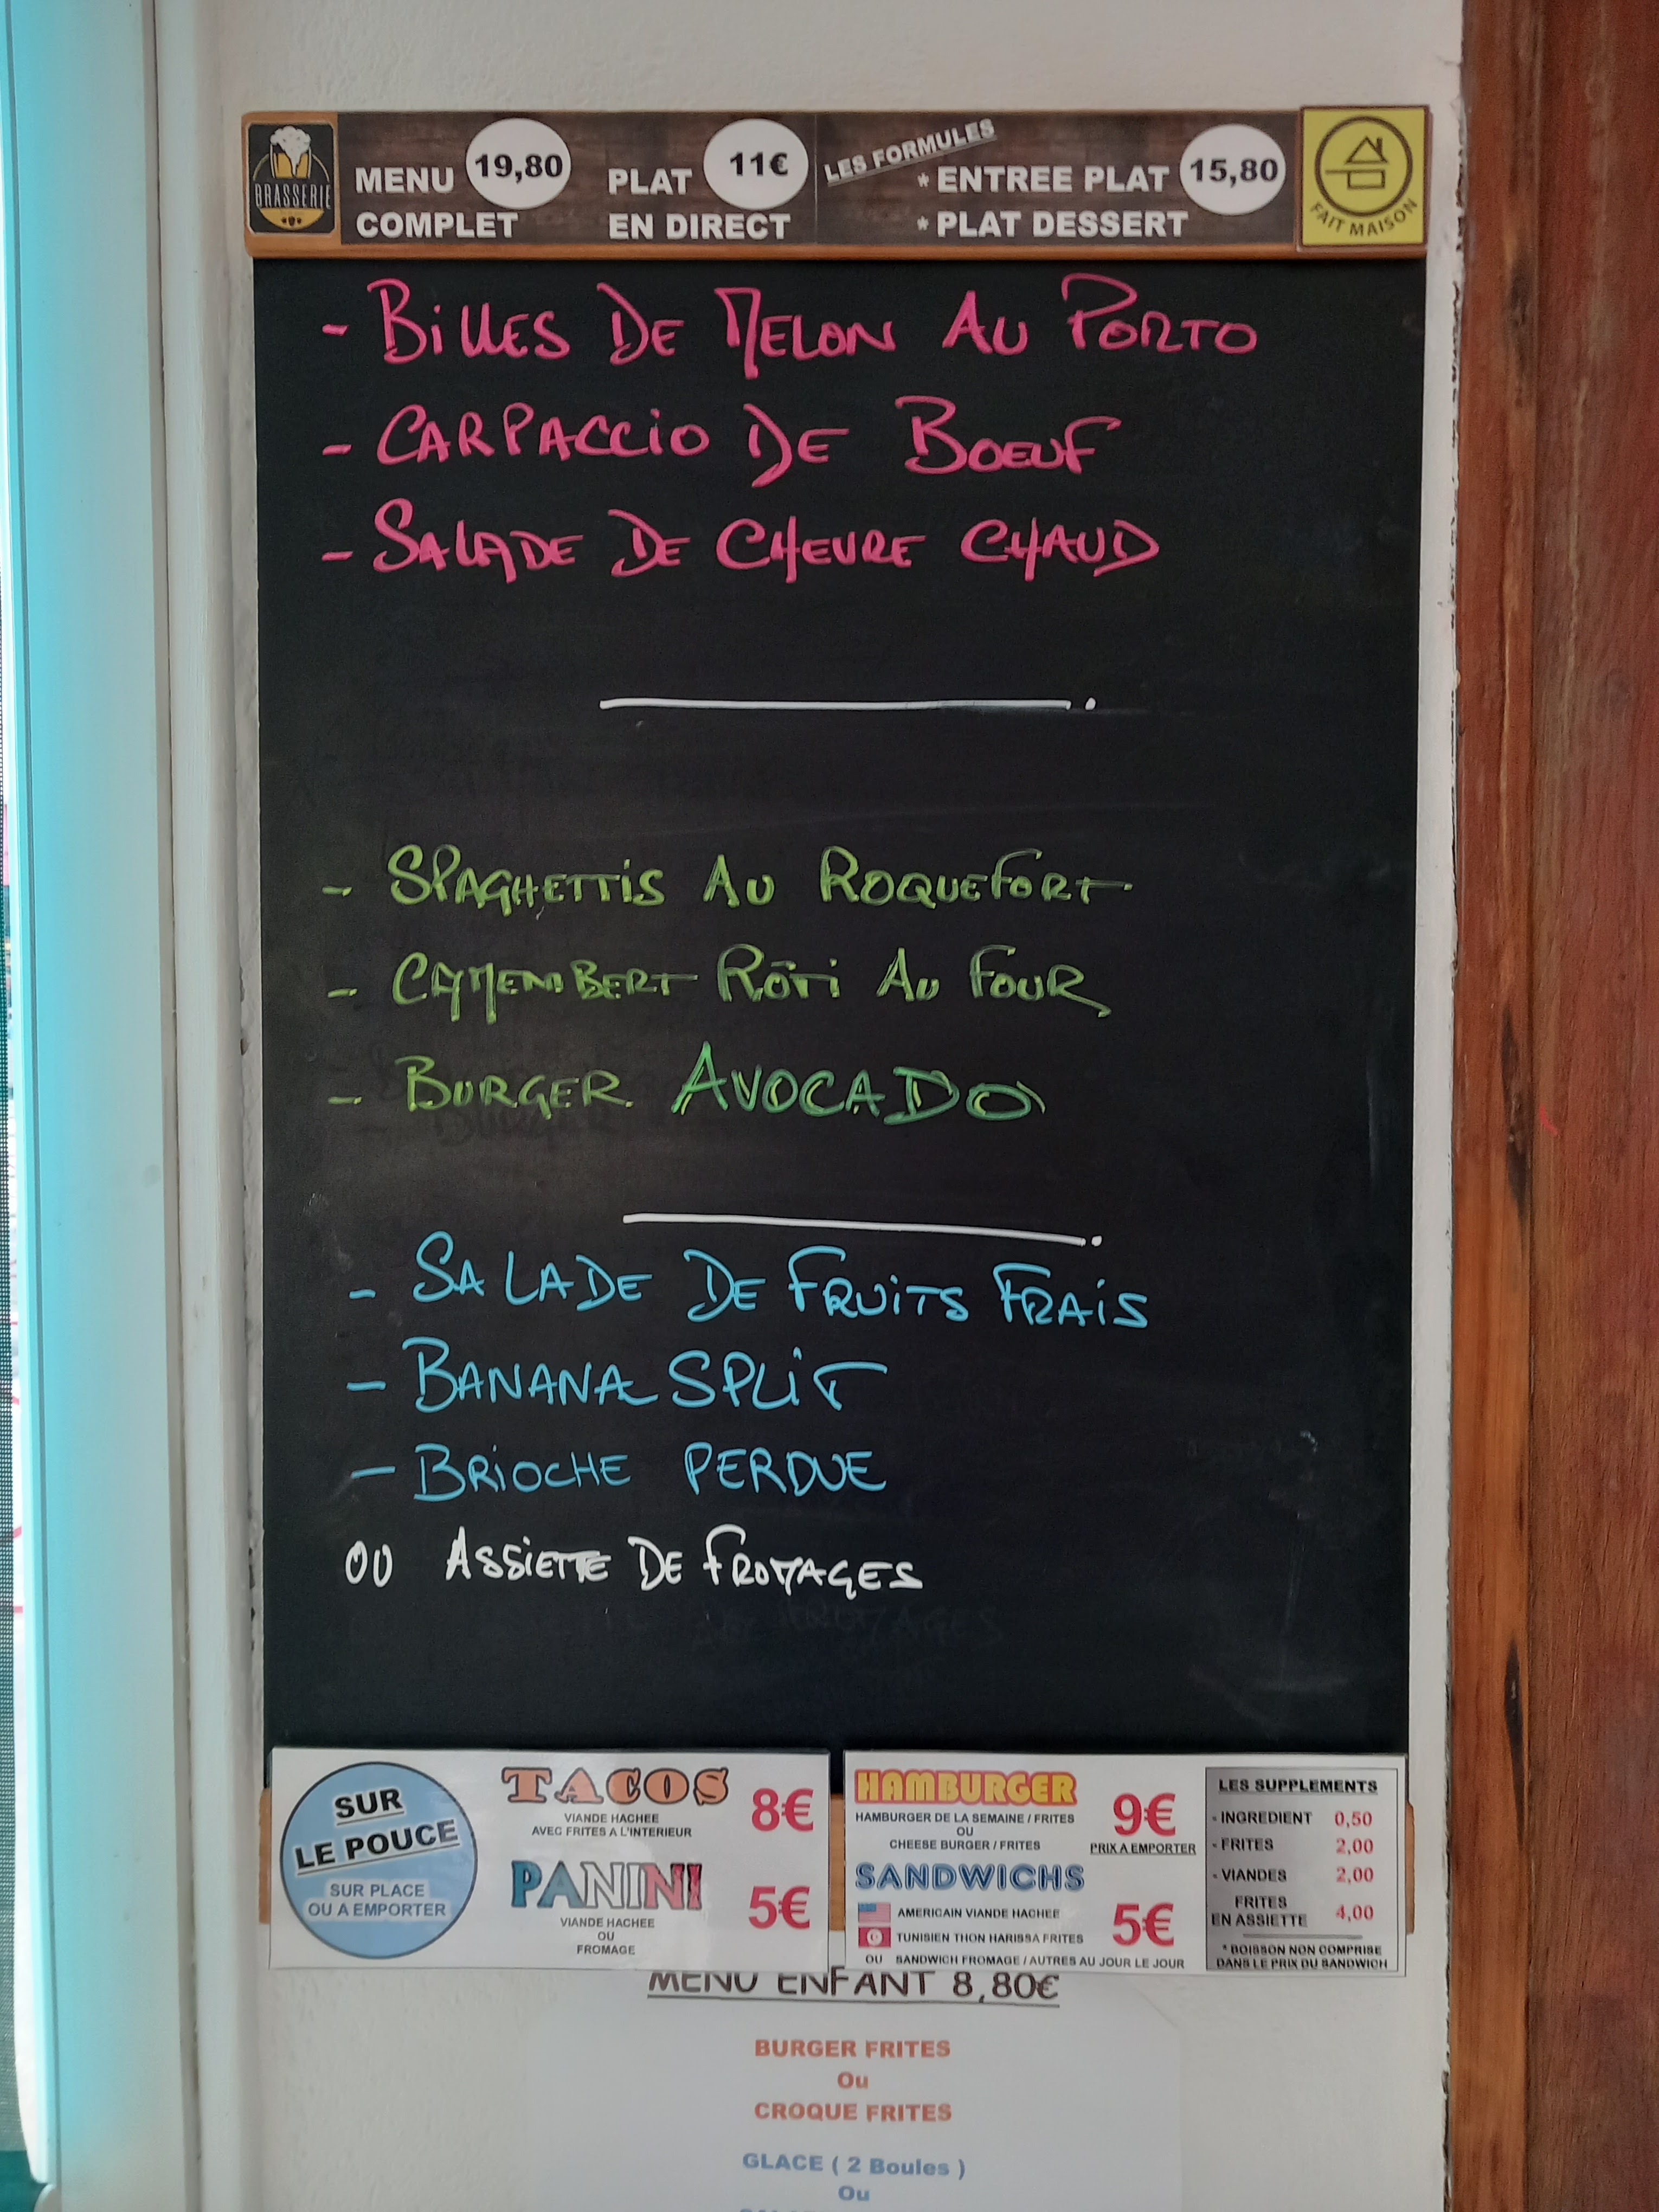 BRASSERIE
MENU 19,80
COMPLET
PLAT 11€
EN DIRECT
LES FORMULES
* ENTREE PLAT 15,80
* PLAT DESSERT
FAIT MAISON
- BILLES DE MELON AU PORTO
- CARPACCIO DE BOEUF
- SALADE DE CHEVRE CHAUD
- SPAGHETTIS AU ROQUEFORT
- CAMEMBERT RÔTI AU FOUR
- BURGER AVOCADO
- SALADE DE FRUITS FRAIS
- BANANA SPLIT
- BRIOCHE PERDUE
OU ASSIETTE DE FROMAGES
SUR
LE POUCE
SUR PLACE
OU A EMPORTER
TACOS 8€
VIANDE HACHEE
AVEC FRITES A L'INTERIEUR
PANINI 5€
VIANDE HACHEE
OU
FROMAGE
HAMBURGER 9€
HAMBURGER DE LA SEMAINE / FRITES
OU
CHEESE BURGER / FRITES
PRIX A EMPORTER
SANDWICHS 5€
AMERICAIN VIANDE HACHEE
TUNISIEN THON HARISSA FRITES
OU SANDWICH FROMAGE / AUTRES AU JOUR LE JOUR
LES SUPPLEMENTS
- INGREDIENT 0,50
- FRITES 2,00
- VIANDES 2,00
FRITES
EN ASSIETTE 4,00
* BOISSON NON COMPRISE
DANS LE PRIX DU SANDWICH
MENU ENFANT 8,80€
BURGER FRITES
Ou
CROQUE FRITES
GLACE ( 2 Boules )
Ou